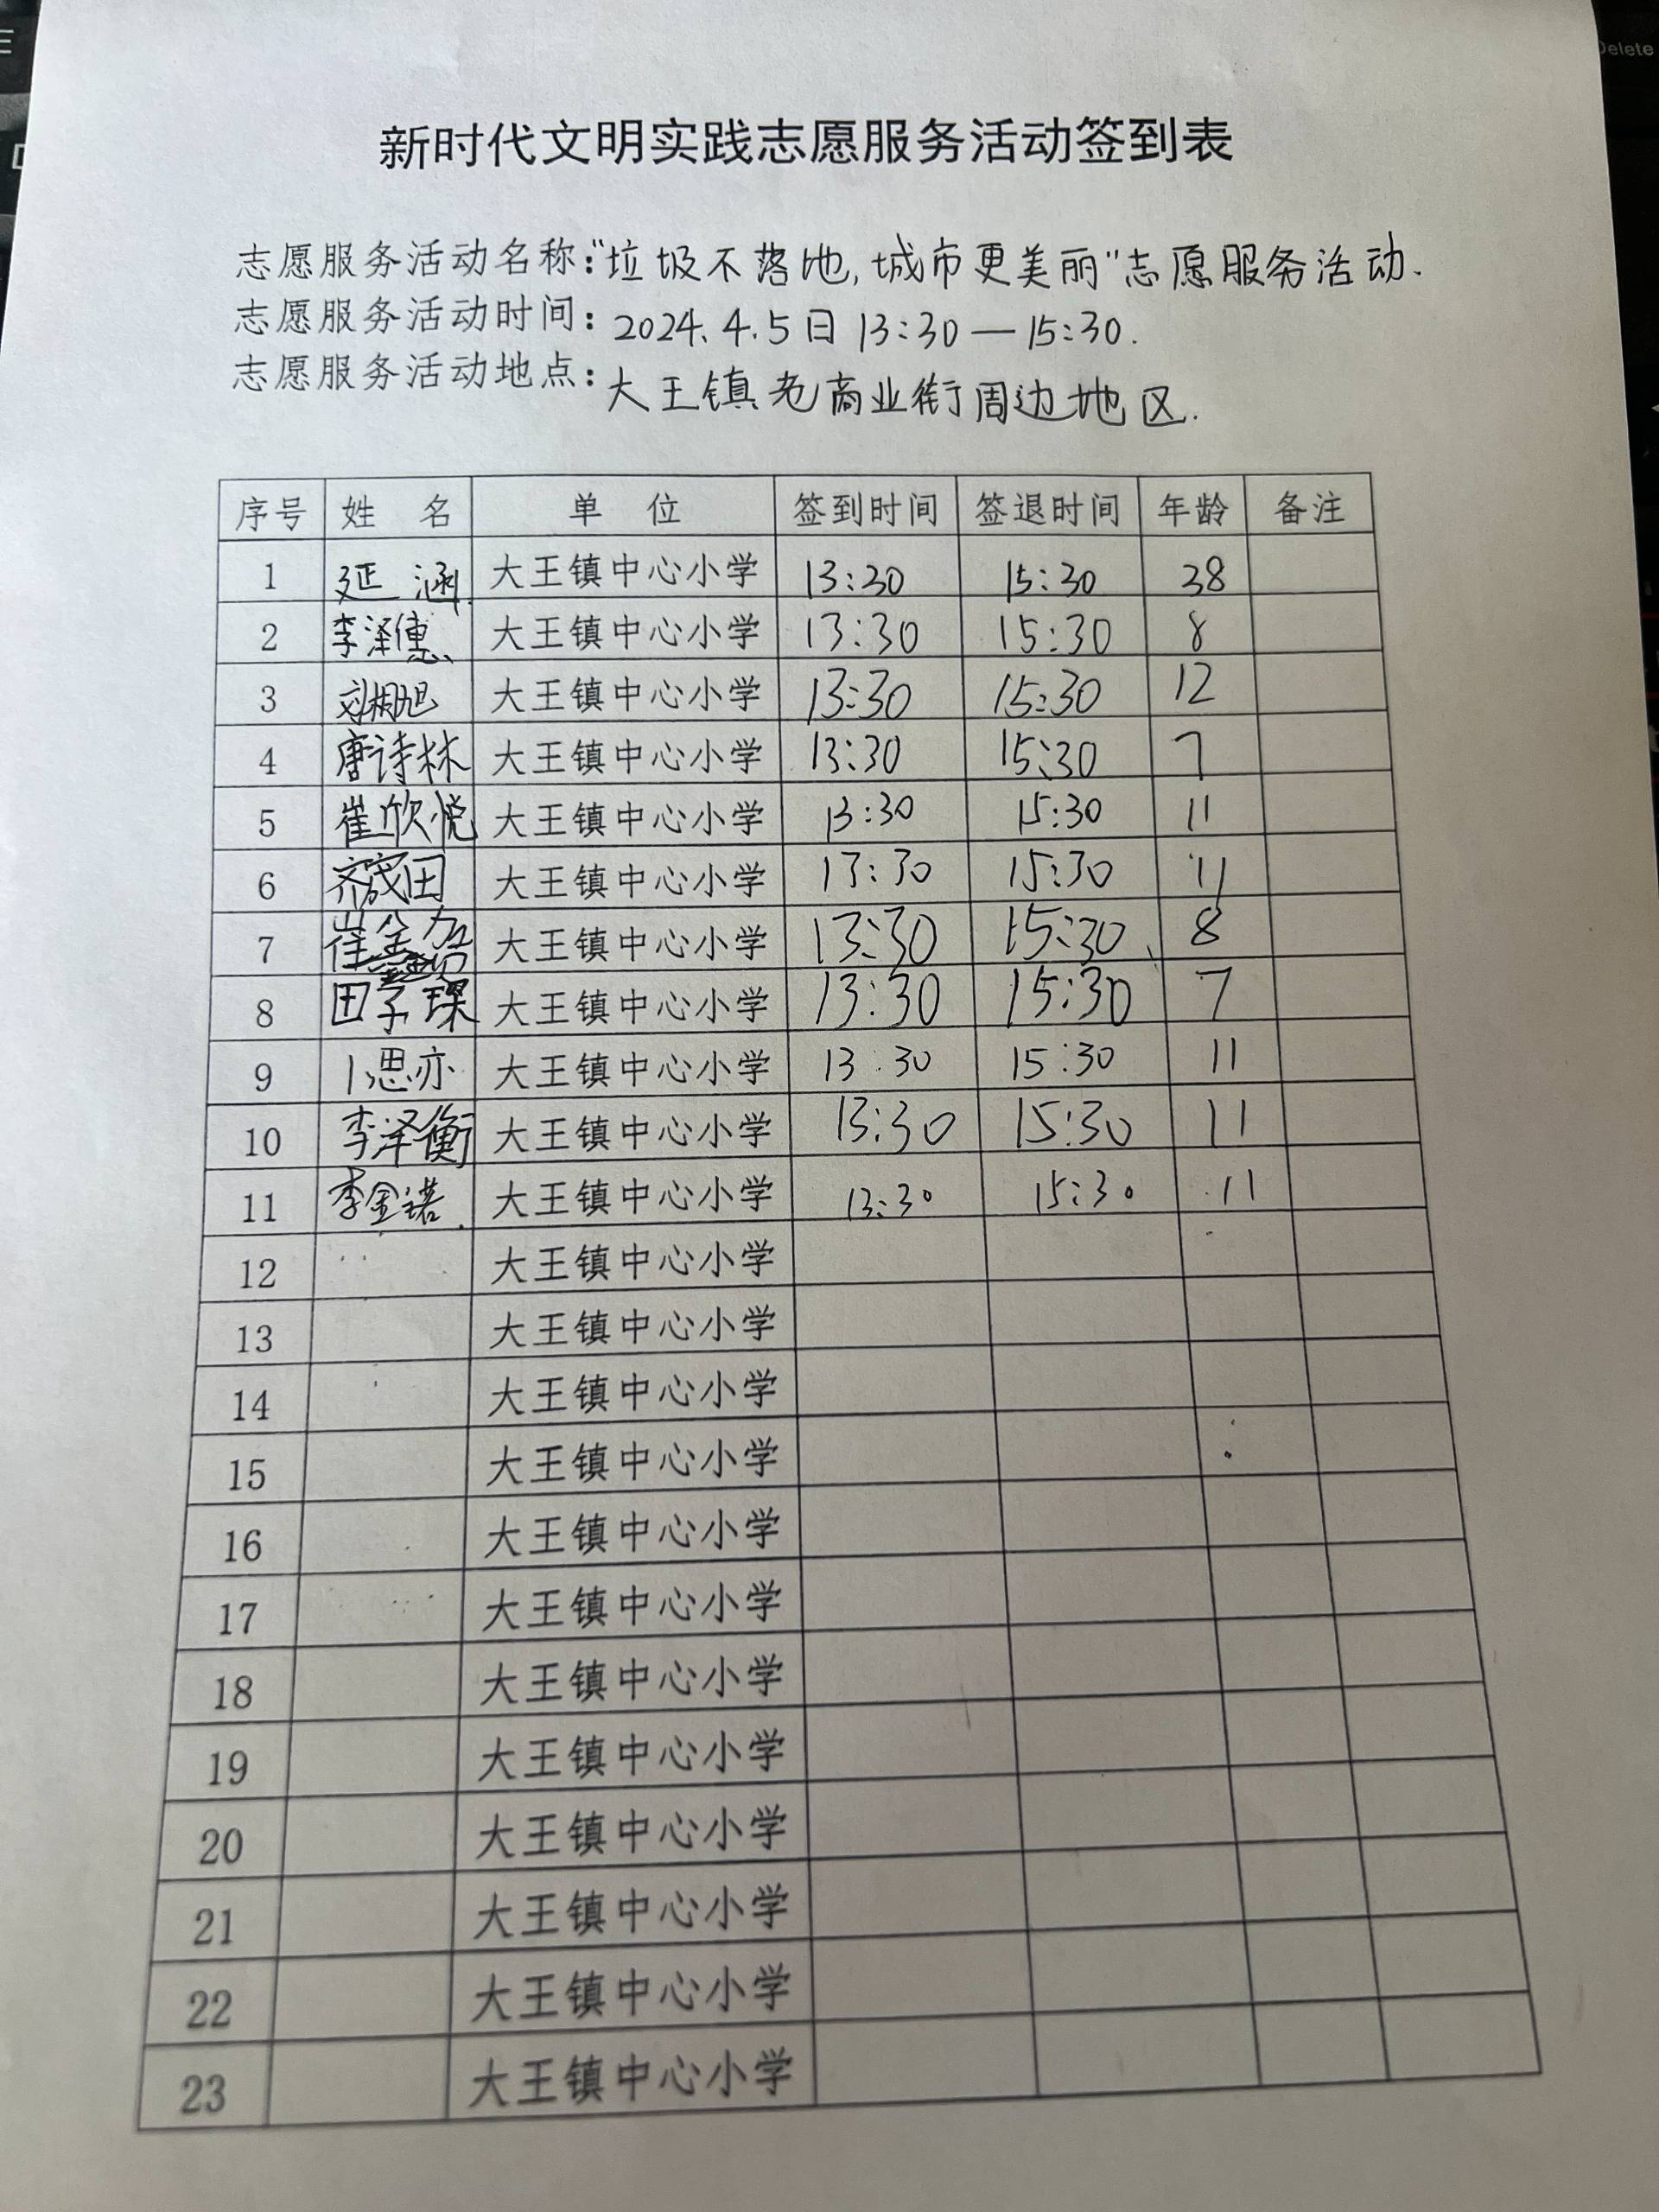 新时代文明实践志愿服务活动签到表
志愿服务活动名称：“垃圾不落地,城市更美丽”志愿服务活动.
志愿服务活动时间：2024.4.5日 13:30—15:30.
志愿服务活动地点：大王镇老商业街周边地区.
序号 姓 名 单 位 签到时间 签退时间 年龄 备注
1 延 涵 大王镇中心小学 13:30 15:30 38
2 李泽僡 大王镇中心小学 13:30 15:30 8
3 大王镇中心小学 13:30 15:30 12
4 唐诗林 大王镇中心小学 13:30 15:30 7
5 崔欣悦 大王镇中心小学 13:30 15:30 11
6 大王镇中心小学 13:30 15:30 11
7 大王镇中心小学 13:30 15:30 8
8 田子琛 大王镇中心小学 13:30 15:30 7
9 卜思亦 大王镇中心小学 13:30 15:30 11
10 李泽衡 大王镇中心小学 13:30 15:30 11
11 李金诺 大王镇中心小学 13:30 15:30 11
12 大王镇中心小学
13 大王镇中心小学
14 大王镇中心小学
15 大王镇中心小学
16 大王镇中心小学
17 大王镇中心小学
18 大王镇中心小学
19 大王镇中心小学
20 大王镇中心小学
21 大王镇中心小学
22 大王镇中心小学
23 大王镇中心小学
Delete